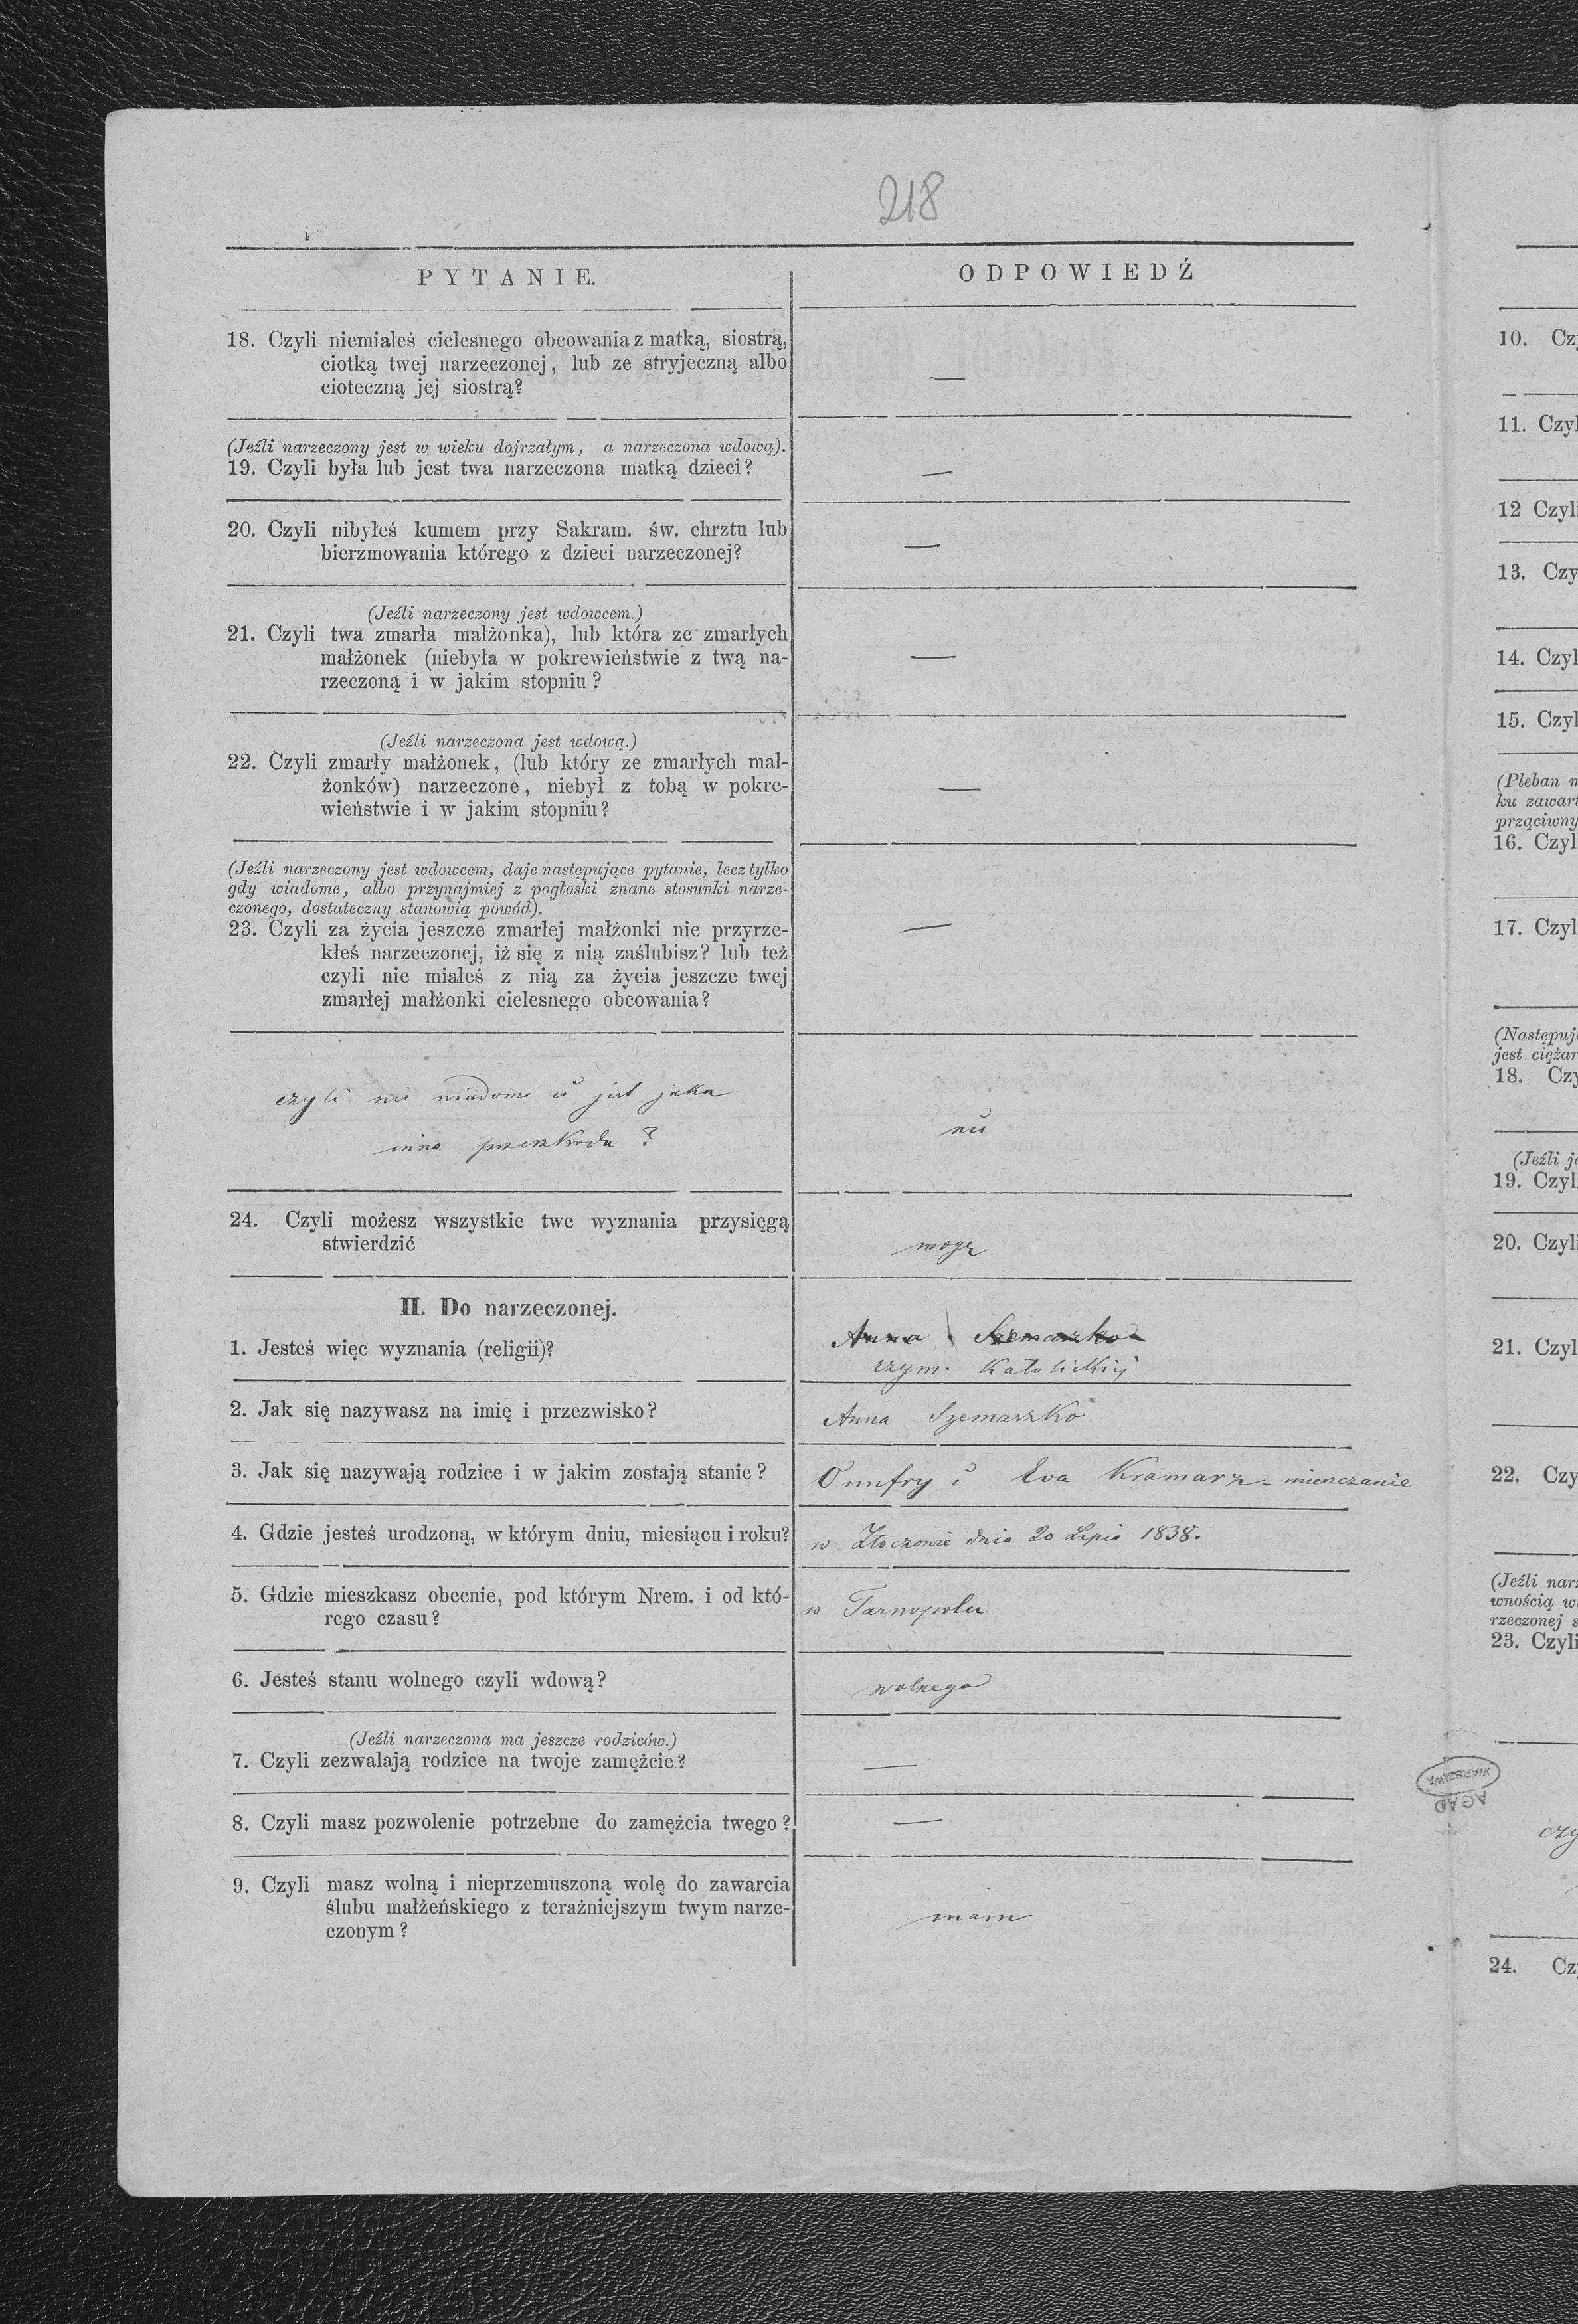 218
PYTANIE.
ODPOWIEDŹ
18. Czyli niemiałeś cielesnego obcowania z matką, siostrą,
ciotką twej narzeczonej, lub ze stryjeczną albo
cioteczną jej siostrą?
—
(Jeźli narzeczony jest w wieku dojrzałym, a narzeczona wdową).
19. Czyli była lub jest twa narzeczona matką dzieci?
—
20. Czyli nibyłeś kumem przy Sakram. św. chrztu lub
bierzmowania którego z dzieci narzeczonej?
—
(Jeźli narzeczony jest wdowcem.)
21. Czyli twa zmarła małżonka), lub która ze zmarłych
małżonek (niebyła w pokrewieństwie z twą na-
rzeczoną i w jakim stopniu?
—
(Jeźli narzeczona jest wdową.)
22. Czyli zmarły małżonek, (lub który ze zmarłych mał-
żonków) narzeczone, niebył z tobą w pokre-
wieństwie i w jakim stopniu?
—
(Jeźli narzeczony jest wdowcem, daje następujące pytanie, lecz tylko
gdy wiadome, albo przynajmiej z pogłoski znane stosunki narze-
czonego, dostateczny stanowią powód).
23. Czyli za życia jeszcze zmarłej małżonki nie przyrze-
kłeś narzeczonej, iż się z nią zaślubisz? lub też
czyli nie miałeś z nią za życia jeszcze twej
zmarłej małżonki cielesnego obcowania?
—
czyli nie wiadomo iż jest jaka
inna przeszkoda?
nie
24. Czyli możesz wszystkie twe wyznania przysięgą
stwierdzić
mogę
II. Do narzeczonej.
1. Jesteś więc wyznania (religii)?
Anna Szemaszko
rzym. Katolickiej
2. Jak się nazywasz na imię i przezwisko?
Anna Szemaszko
3. Jak się nazywają rodzice i w jakim zostają stanie?
Onufry i Ewa Kramarz - mieszczanie
4. Gdzie jesteś urodzoną, w którym dniu, miesiącu i roku?
w Złoczowie dnia 20 Lipia 1838.
5. Gdzie mieszkasz obecnie, pod którym Nrem. i od któ-
rego czasu?
w Tarnopolu
6. Jesteś stanu wolnego czyli wdową?
wolnego
(Jeźli narzeczona ma jeszcze rodziców.)
7. Czyli zezwalają rodzice na twoje zamężcie?
—
8. Czyli masz pozwolenie potrzebne do zamężcia twego?
—
9. Czyli masz wolną i nieprzemuszoną wolę do zawarcia
ślubu małżeńskiego z teraźniejszym twym narze-
czonym?
mam
10. Cz
11. Czyl
12 Czyli
13. Czy
14. Czyl
15. Czyl
(Pleban n
ku zawar
prząciwny
16. Czyl
17. Czyl
(Następuj
jest ciężar
18. Czy
(Jeźli je
19. Czyl
20. Czyli
21. Czyl
22. Czy
(Jeźli narz
wnością w
rzeczonej s
23. Czyli
WARSZAWA
AGAD
czy
24. Cz